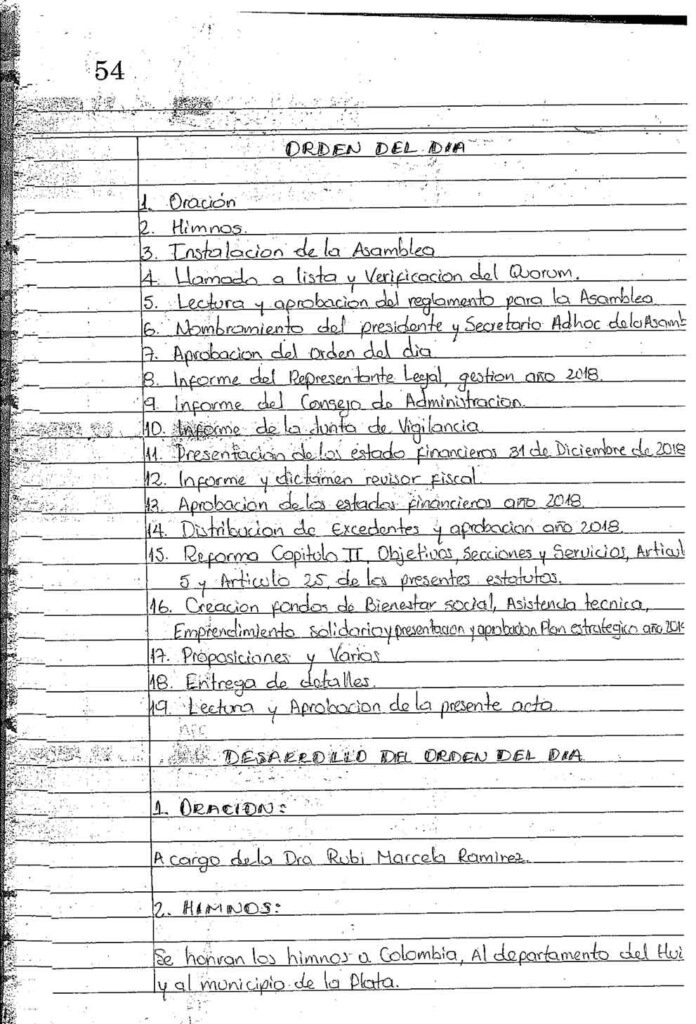 54
ORDEN DEL DIA
1. Oración
2. Himnos.
3. Instalacion de la Asamblea
4. Llamado a lista y Verificacion del Quorum.
5. Lectura y aprobacion del reglamento para la Asamblea
6. Nombramiento del presidente y Secretario Adhoc de la Asamb
7. Aprobacion del orden del dia
8. Informe del Representante Legal, gestion año 2018.
9. Informe del Consejo de Administracion.
10. Informe de la Junta de Vigilancia
11. Presentación de los estado financieros 31 de Diciembre de 2018
12. Informe y dictamen revisor fiscal
13. Aprobacion de los estados financieros año 2018.
14. Distribucion de Excedentes y aprobacion año 2018.
15. Reforma Capitulo II, Objetivos, Secciones y Servicios, Articul
5 y Articulo 25, de los presentes estatutos.
16. Creacion fondos de Bienestar social, Asistencia tecnica,
Emprendimiento solidario y presentacion y aprobacion Plan estrategico año 201
17. Proposiciones y Varios
18. Entrega de detalles.
19. Lectura y Aprobacion de la presente acta
DESARROLLO DEL ORDEN DEL DIA
1. ORACION:
A cargo de la Dra Rubi Marcela Ramirez.
2. HIMNOS:
Se honran los himnos a Colombia, Al departamento del Hui
y al municipio de la Plata.